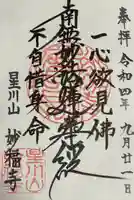 奉拝 令和四年九月廿一日
一心欲見佛
南無妙法蓮華経
不自惜身命
星川山 妙福寺